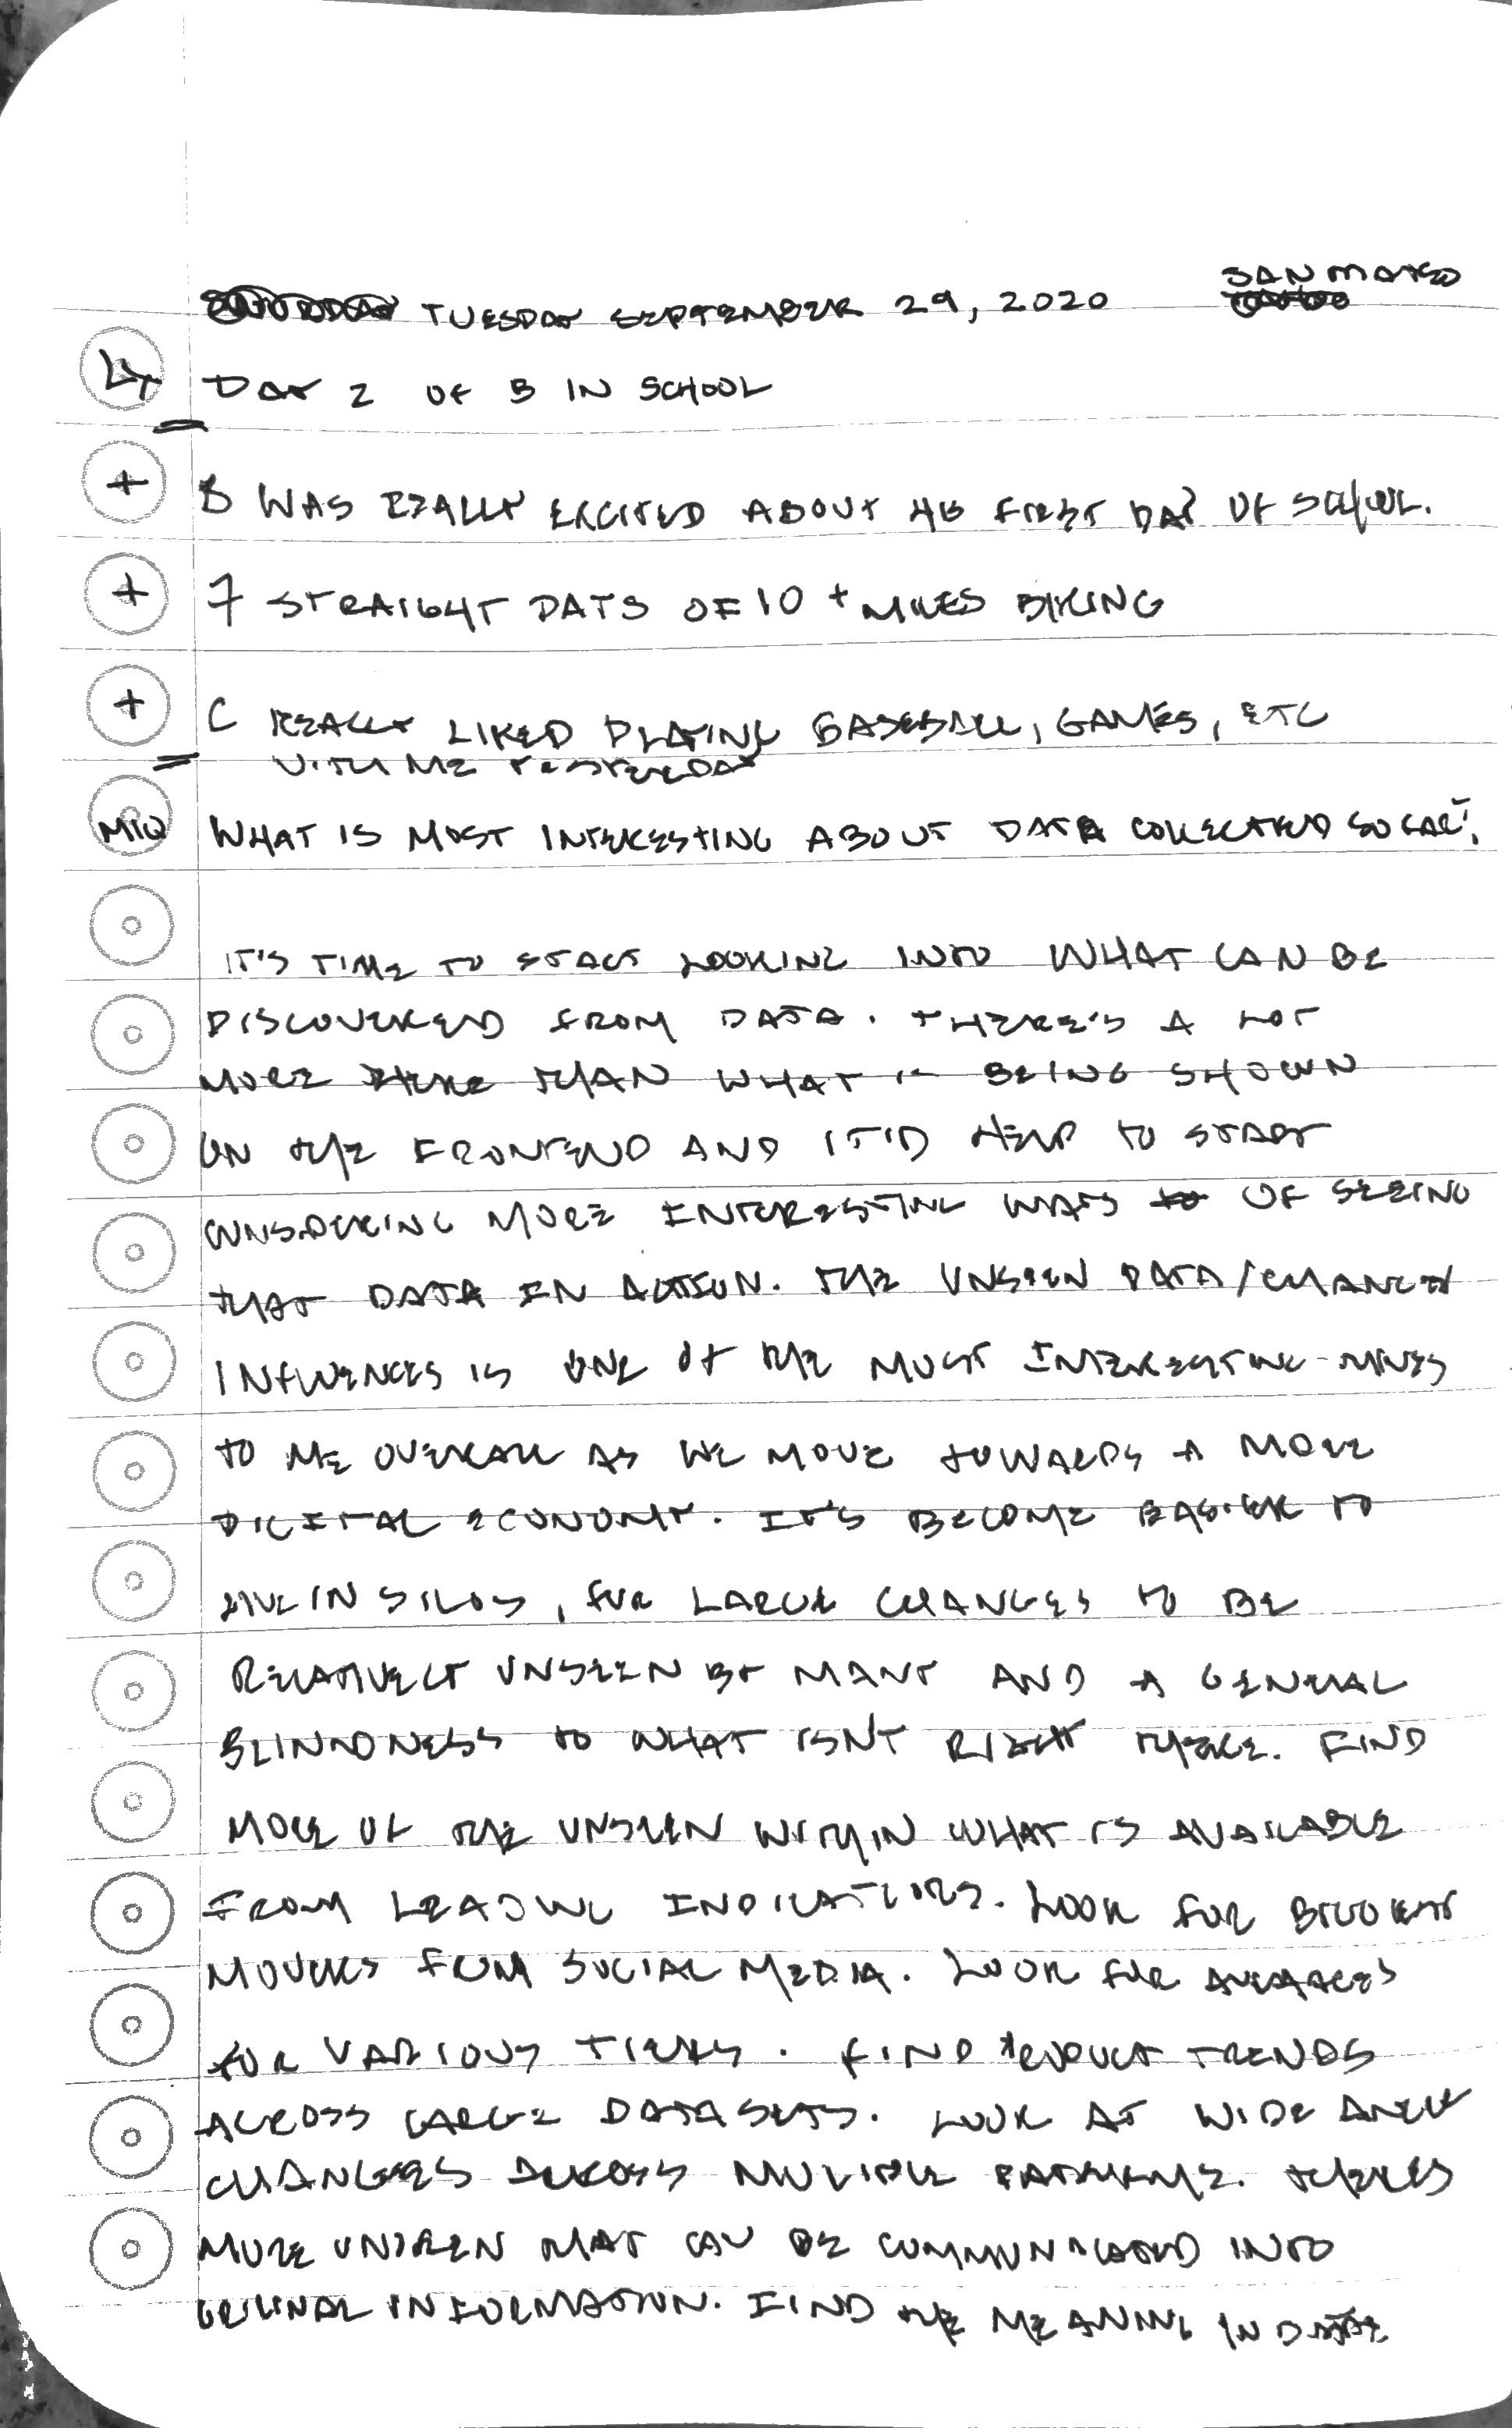 SAN MATEO
TUESDAY SEPTEMBER 29, 2020
LT DAY 2 OF B IN SCHOOL
+ B WAS REALLY EXCITED ABOUT HIS FIRST DAY OF SCHOOL.
+ 7 STRAIGHT DAYS OF 10+ MILES BIKING
+ C REALLY LIKED PLAYING BASEBALL, GAMES, ETC
WITH ME YESTERDAY
MIQ WHAT IS MOST INTERESTING ABOUT DATA COLLECTED SO FAR?
IT'S TIME TO START LOOKING INTO WHAT CAN BE
DISCOVERED FROM DATA. THERE'S A LOT
MORE THERE THAN WHAT IS BEING SHOWN
ON THE FRONTEND AND IT'D HELP TO START
CONSIDERING MORE INTERESTING WAYS OF SEEING
THAT DATA IN ACTION. THE UNSEEN DATA/CHANGE
INFLUENCES IS ONE OF THE MOST INTERESTING
TO ME OVERALL AS WE MOVE TOWARDS A MORE
DIGITAL ECONOMY. IT'S BECOME EASIER TO
LIVE IN SILOS, FOR LARGE CHANGES TO BE
RELATIVELY UNSEEN BY MANY AND A GENERAL
BLINDNESS TO WHAT ISN'T RIGHT THERE. FIND
MORE OF THE UNSEEN WITHIN WHAT IS AVAILABLE
FROM LEADING INDICATORS. LOOK FOR BIGGEST
MOVERS FROM SOCIAL MEDIA. LOOK FOR AVERAGES
FOR VARIOUS TIERS. FIND PRODUCT TRENDS
ACROSS LARGE DATASETS. LOOK AT WIDE ANGLE
CHANGES ACROSS MULTIPLE PLATFORMS. THERE'S
MORE UNSEEN THAT CAN BE COMMUNICATED INTO
ORIGINAL INFORMATION. FIND THE MEANING IN DATA